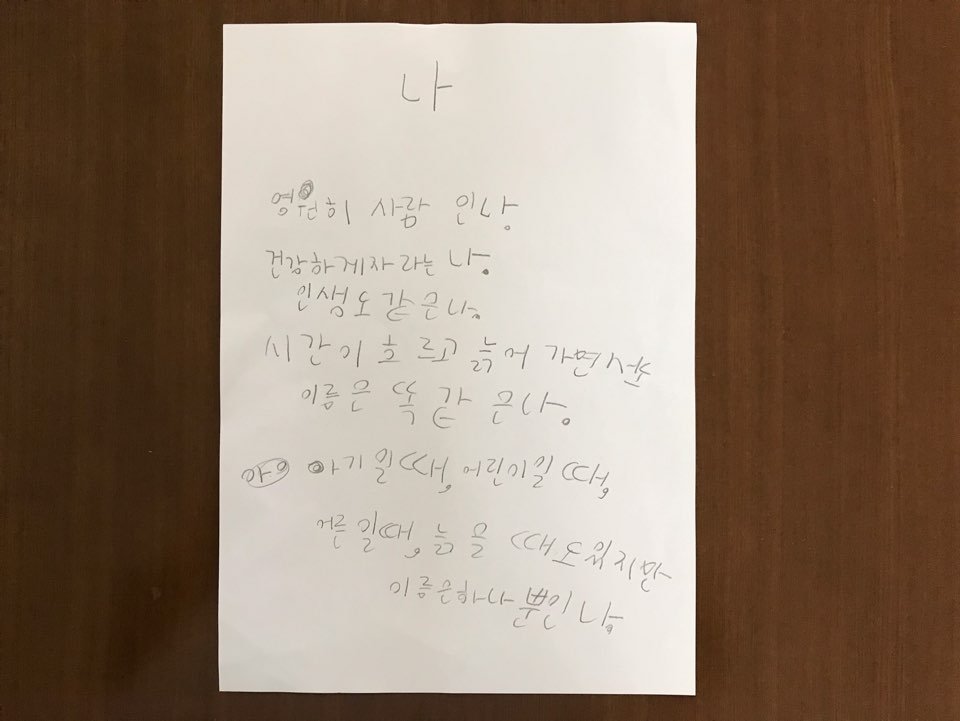 나
영원히 사람 인 나.
건강하게 자라는 나.
인생도 같은 나.
시간이 흐르고 늙어 가면서도
이름은 똑같은 나.
아기일 때, 어린이일 때,
어른일 때, 늙을 때도 있지만
이름은 하나 뿐인 나.